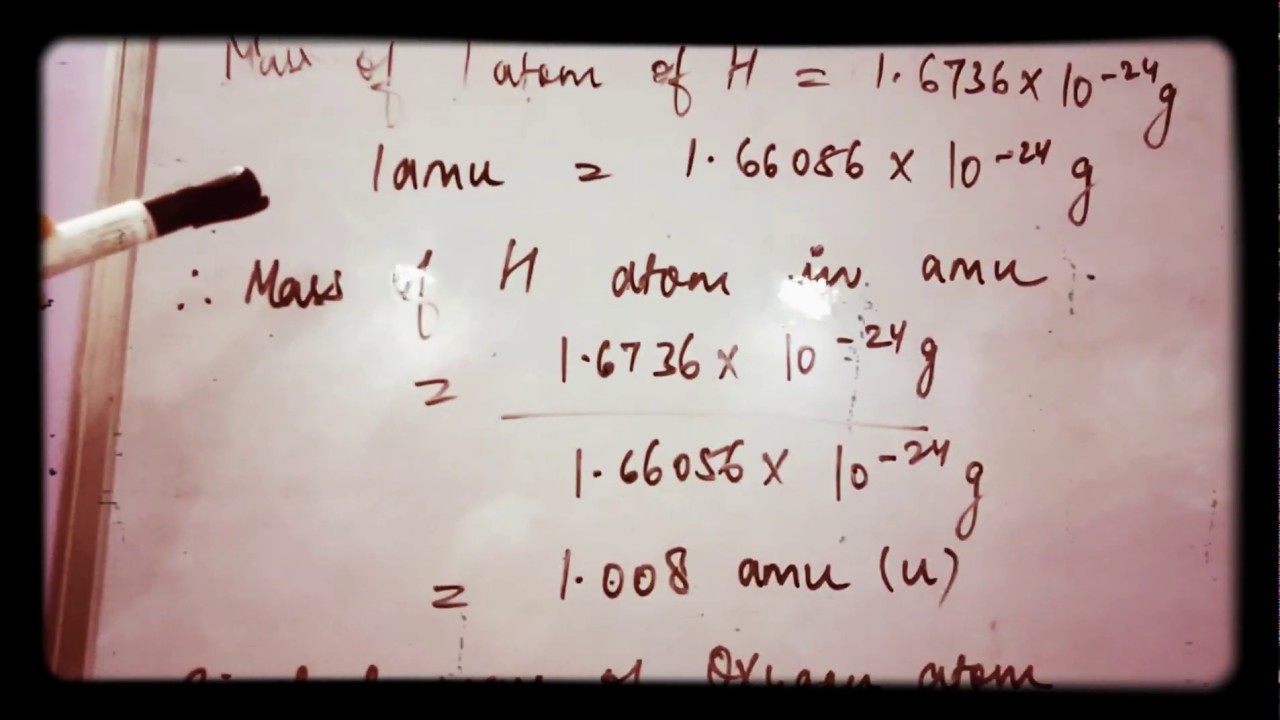 Mass of 1 atom of H = 1.6736 x 10⁻²⁴ g
1 amu = 1.66086 x 10⁻²⁴ g
∴ Mass of H atom in amu.
= 1.6736 x 10⁻²⁴ g
1.66056 x 10⁻²⁴ g
= 1.008 amu (u)
of Oxygen atom